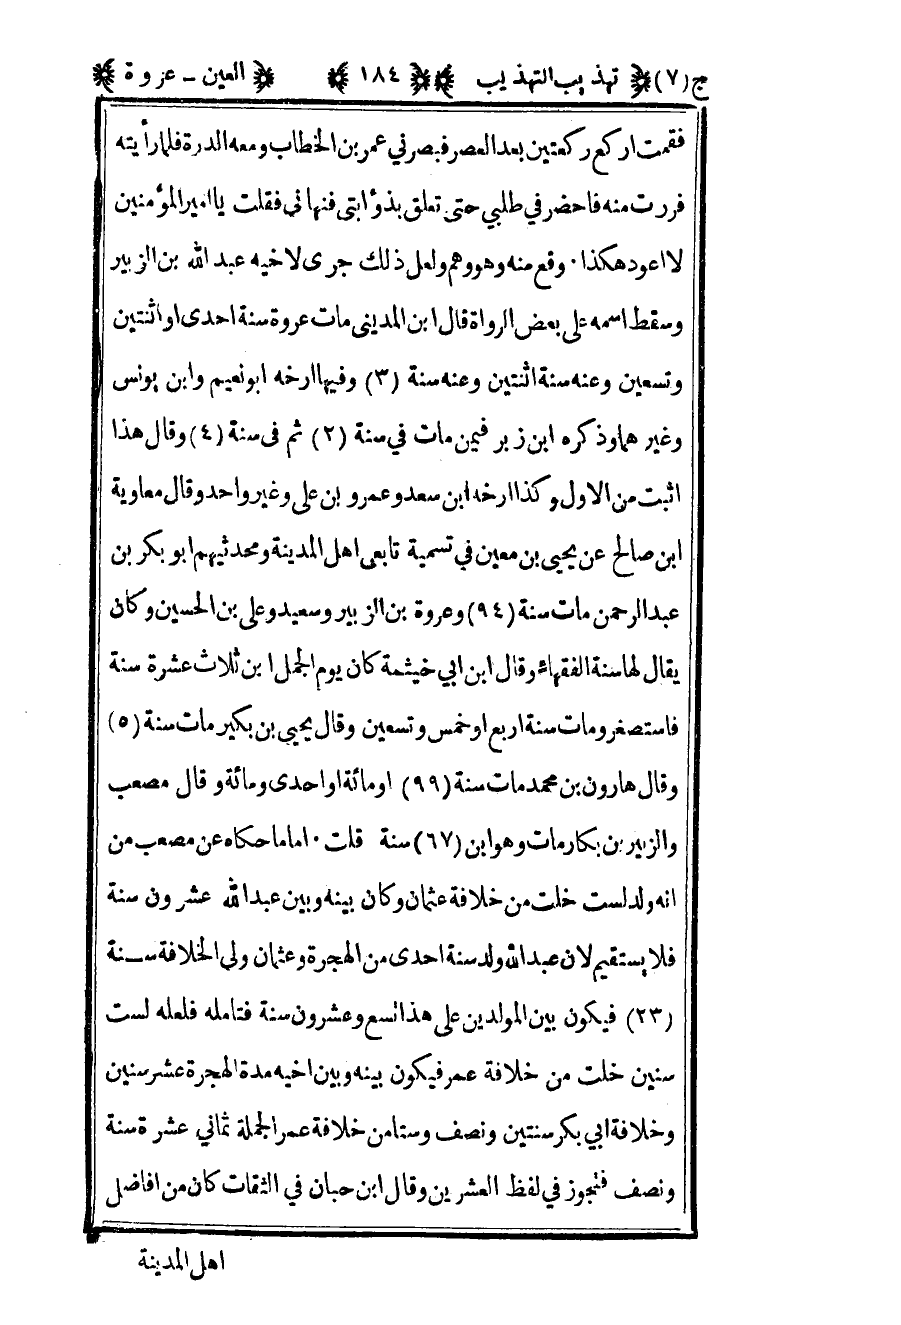 ج (٧) تهذيب التهذيب ١٨٤ العين ــ عروة
فقمت اركع ركعتين بعد العصر فبصر في عمر بن الخطاب ومعه الدرة فلما رأيته
فررت منه فاحضر في طلبي حتى تعلق بذؤابتى فنهاني فقلت يا امير المؤمنين
لا اعود هكذا ٠ وقع منه وهو وهم ولعل ذلك جرى لاخيه عبد الله بن الزبير
وسقط اسمه على بعض الرواة قال ابن المدينى مات عروة سنة احدى او اثنتين
وتسعين وعنه سنة اثنتين وعنه سنة (٣) وفيها ارخه ابو نعيم وابن يونس
وغيرهما وذكره ابن زبر فيمن مات في سنة (٢) ثم فى سنة (٤) وقال هذا
اثبت من الاول وكذا ارخه ابن سعد وعمرو بن على وغير واحد وقال معاوية
ابن صالح عن يحيى بن معين في تسمية تابعى اهل المدينة ومحدثيهم ابو بكر بن
عبد الرحمن مات سنة (٩٤) وعروة بن الزبير وسعيد وعلى بن الحسين وكان
يقال لها سنة الفقهاء وقال ابن ابي خيثمة كان يوم الجمل ابن ثلاث عشرة سنة
فاستصغر ومات سنة اربع او خمس وتسعين وقال يحيى بن بكير مات سنة (٥)
وقال هارون بن محمد مات سنة (٩٩) او مائة او احدى ومائة وقال مصعب
والزبير بن بكار مات وهو ابن (٦٧) سنة قلت ٠ اما ما حكاه عن مصعب من
انه ولد لست خلت من خلافة عثمان وكان بينه وبين عبد الله عشرون سنة
فلا يستقيم لان عبد الله ولد سنة احدى من الهجرة وعثمان ولي الخلافة ســنة
(٢٣) فيكون بين المولدين على هذا تسع وعشرون سنة فتامله فلعله لست
سنين خلت من خلافة عمر فيكون بينه وبين اخيه مدة الهجرة عشر سنين
وخلافة ابي بكر سنتين ونصف وستا من خلافة عمر الجملة ثماني عشرة سنة
ونصف فتجوز في لفظ العشرين وقال ابن حبان في الثقات كان من افاضل
اهل المدينة